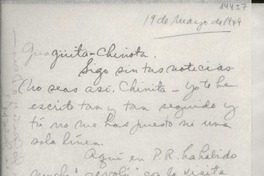 14437
19 de Marzo de 1949
Guagüita - Chinota.
Sigo sin tus noticias
No seas así, Chinita - Yo te he
escrito tan y tan seguido y
tú no me has puesto ni una
sola línea.
Aquí en P.R. ha habido
mucho "revolú" co la visita